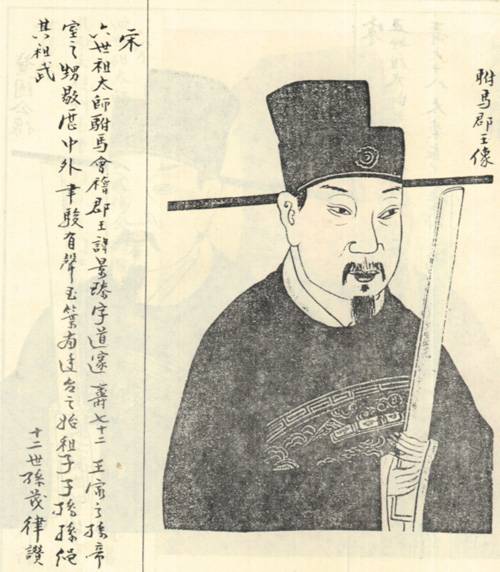 駙馬郡王像
宋
六世祖太師駙馬會稽郡王諱景臻字道邃壽七十二 王家之孫帝
室之甥敭歷中外聿駿有聲有台之始祖子子孫孫繩
其祖武
十二世孫茂律讚